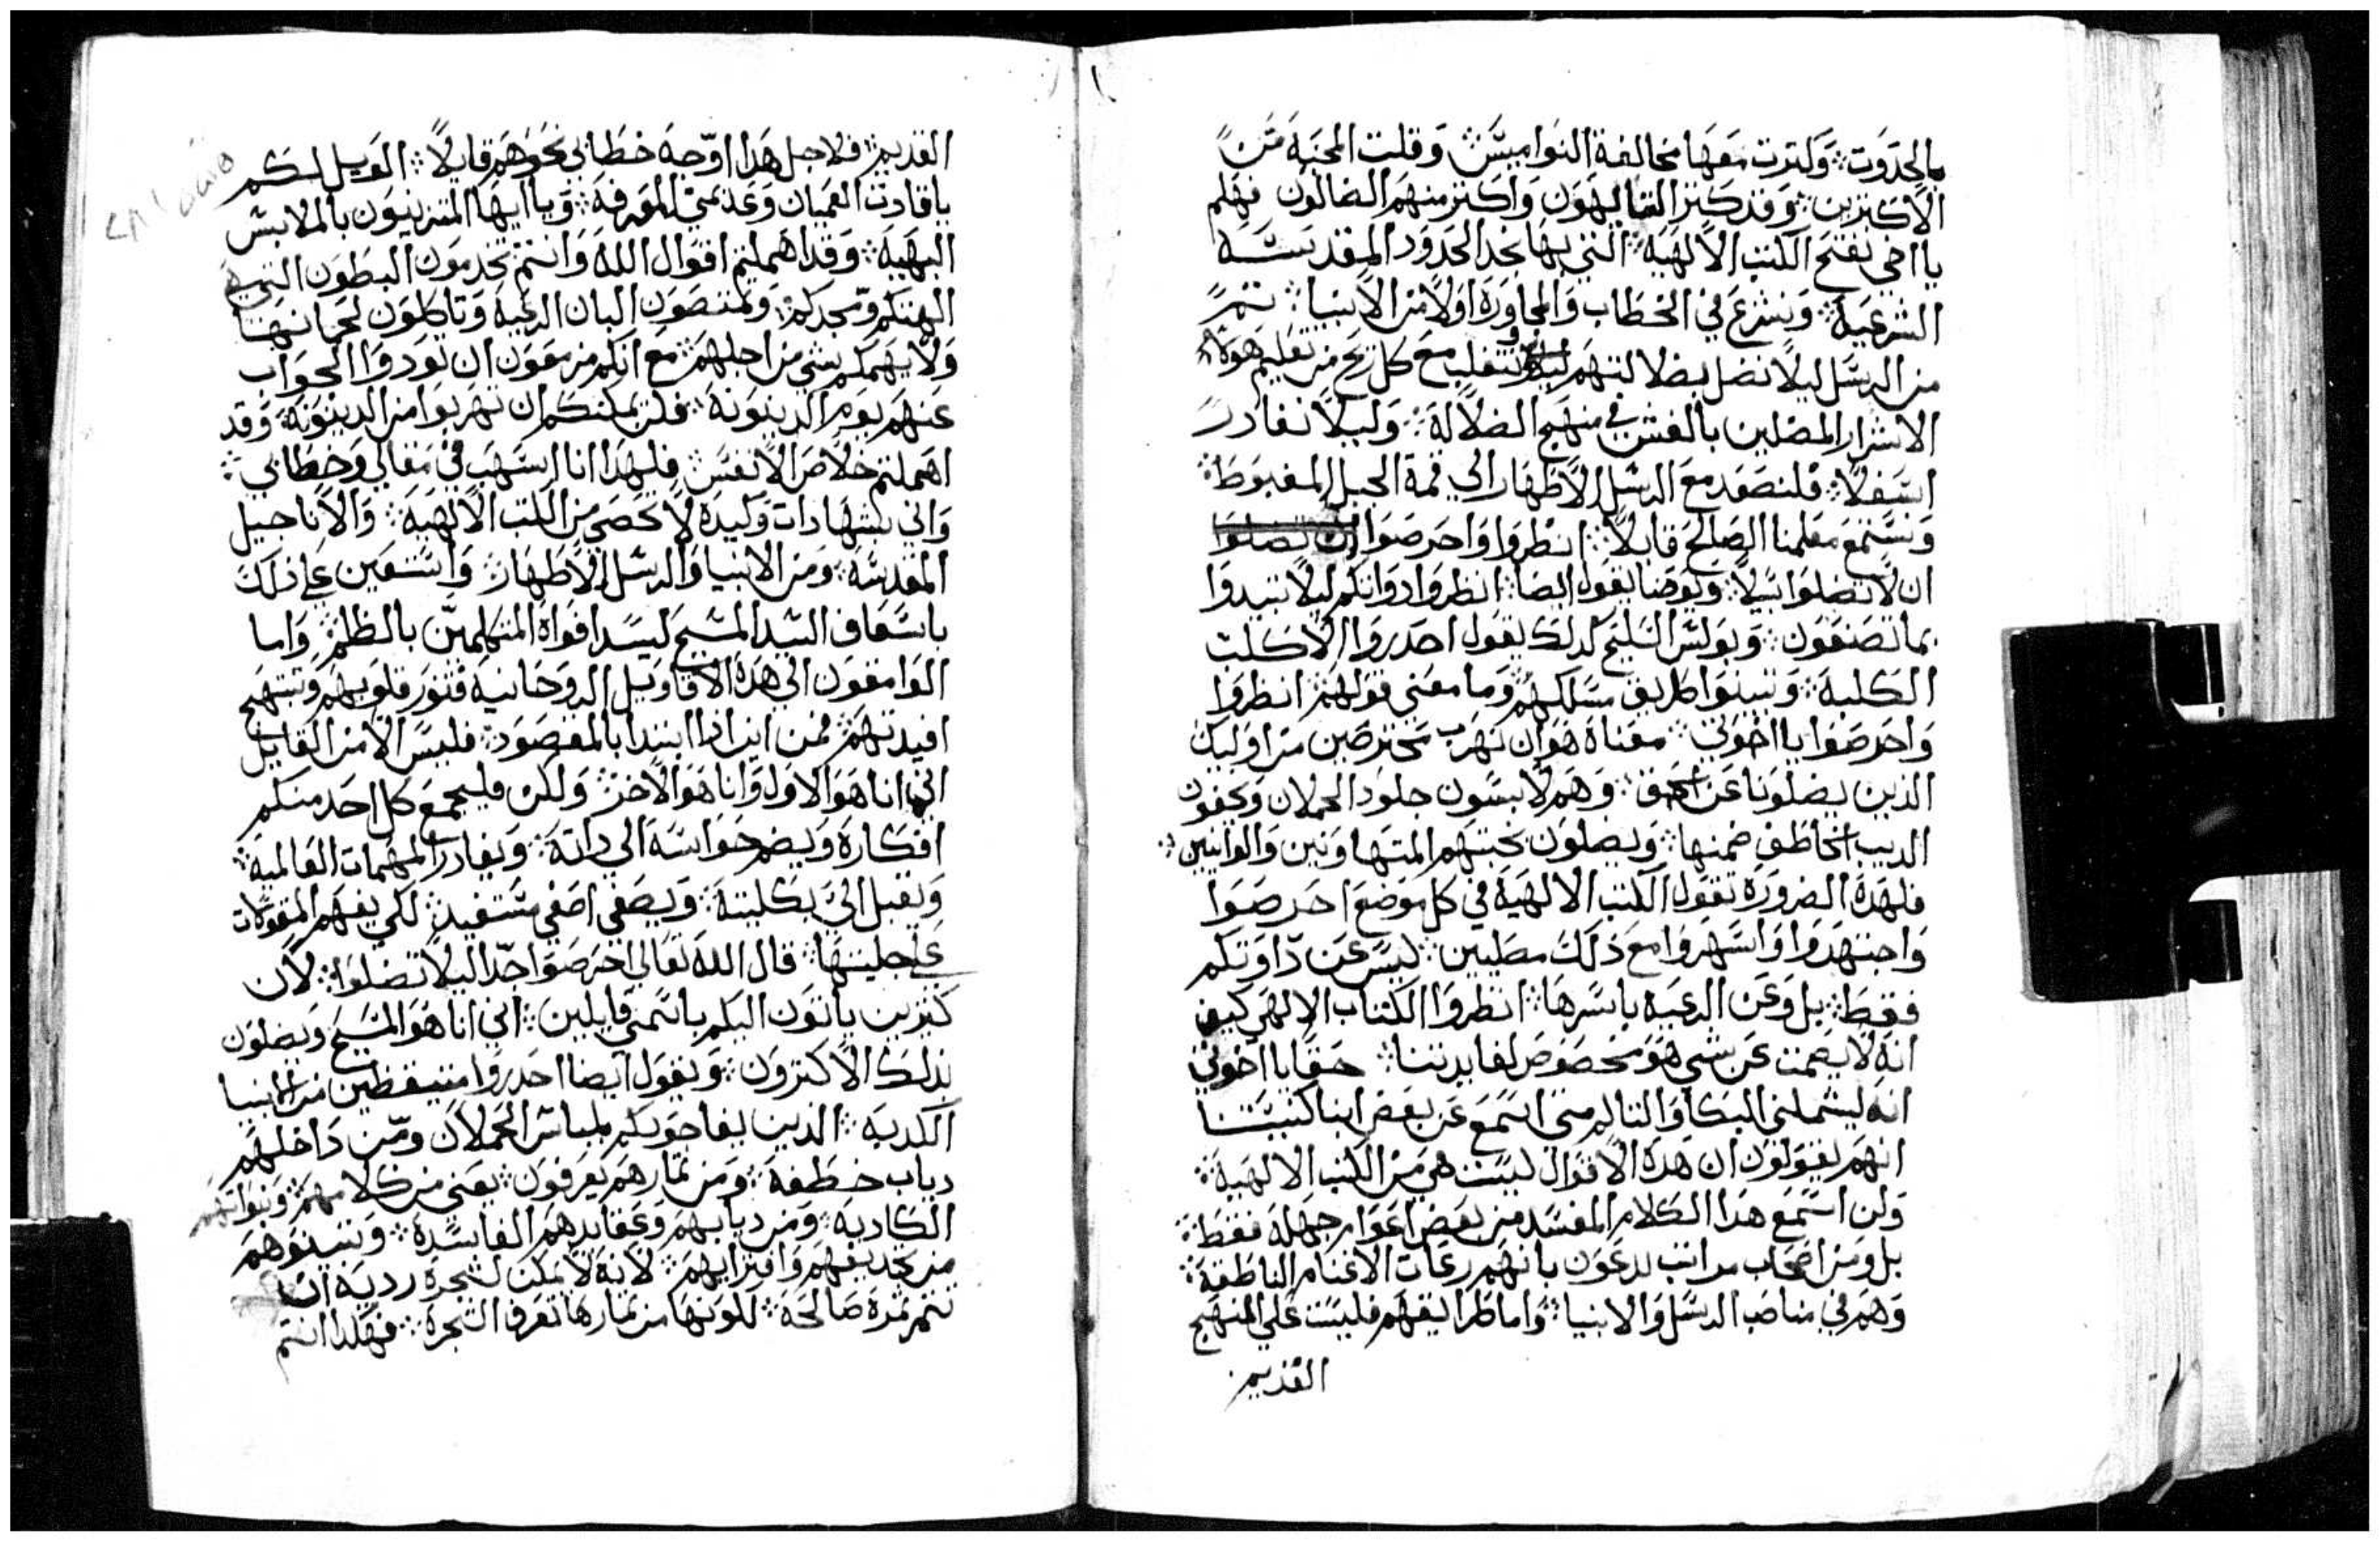 بالحدوت؞ ولترت معها مخالفة النواميس؞ وقلت المحبه من
الاكثرين؞ وقد كثر التايهون واكثر منهم الضالون فهلم
يا اخي نفتح الكتب الالهيه؞ التي بها نجد الحدود المقدسه
الشرعيه؞ ونشرع في الخطاب والمجاوره اولا من الانبيا؞ تم
من الرسل ليلا نضل بضلالتهم ونتقلب مع كل ريح من تعليم هولاء
الاشرار المضلين بالغش في منهج الضلاله؞ وليلا نغادر
اسفلا؞ فلنصعد مع الرسل الاطهار الي قمة الجبل المغبوطة؞
ونستمع معلمنا الصالح قايلا؞ انظروا واحرصوا ان تضلوا
ان لا تضلوا تيلا؞ ويوحنا يقول ايضا؞ انظروا دواتكم ليلا تبيدوا
بما تصنعون؞ وبولس السليح كدلك يقول احدروا الاكلت
الكلبه؞ وتبينوا طريق مسلكهم؞ وما معني قولهم؞ انظروا
واحرصوا يا اخوتي؞ معناه هو ان نهرب محترصين من اوليك
الذين يضلونا عن الحق؞ وهم لابسون جلود الحملان ويخفون
الديب الخاطف ضمنها؞ ويضلون بخبتهم المتهاونين والوانيين؞
فلهده الضروره تقول الكتب الالهيه في كل موضع احرصوا
واجتهدوا واسهروا مع ذلك مصليين؞ ليس عن داوتكم
فقط؞ بل وعن الرعيه باسرها؞ انظروا الكتاب الالهي كيف
انه لا يصمت عن شي هو مخصوص لفايدتنا؞ حقا يا اخوتي
انه ليشملني البكا والتالم متي اسمع عن بعض ابنا كنيستنا
انهم يقولون ان هده الاقوال ليست هي من الكتب الالهيه؞
ولن اسمع هدا الكلام المفسد من بعض اعوام جهله فقط؞
بل ومن اصحاب مراتب يدعون بانهم رعات الاغنام الناطقه؞
وهم في مناصب الرسل والانبيا؞ واما طرايقهم فليست علي المنهج
القديم
القديم؞ فلاجل هدا اوجه خطابي نحوهم قايلا؞ الويل لكم
يا قادت العميان وعديمي المعرفة؞ ويا ايها المتزينون بالملابس
البهيه؞ وقد اهملتم اقوال الله وانتم تخدمون البطون التي هي
الهتكم ومجدكم؞ وتمتصون البان الرعيه وتاكلون لحمانها
ولا يهمكم شي من اجلهم؞ مع انكم مزمعون ان تودوا الجواب
عنهم يوم الدينونه؞ فلن يمكنكم ان تهربوا من الدينونه؞ وقد
اهملتم خلاص الانفس؞ فلهدا انا اسهب في مقالي وخطابي؞
واتي بشهادات وكيده لا تحصي من الكتب الالهيه؞ والاناجيل
المقدسه؞ ومن الانبيا والرسل الاطهار؞ واستعين علي ذلك
باسعاف السيد المسيح ليسد افواه المتكلمين بالظلم؞ واما
الوامقون الي هده الاقاويل الروحانيه فتنور قلوبهم وتبتهج
افيدتهم؞ فمن اين ادا ابتدا بالمقصود؞ فليس الا من القايل
اني انا هو الاول وانا هو الاخر؞ ولكن فليجمع كل احد منكم
افكاره ويضم حواسه الي داته؞ ويغادر المهمات العالميه؞
ويقبل الي بكليته؞ ويصغي اصغي مستفيد؞ لكي يفهم المقولات
علي جليتها؞ قال الله تعالي احرصوا جدا ليلا تضلوا؞ لان
كثيرين ياتون اليكم باسمي قايلين؞ اني انا هو المسيح ويضلون
بدلك الاكثرون؞ ويقول ايضا احدروا متيقظين من الانبيا
الكدبه؞ الدين يفاجونكم بلباس الحملان ومن داخلهم
دياب خطفه؞ ومن تمارهم يعرفون؞ يعني من كلامهم؞ ونبواتهم
الكادبه؞ ومن ديابهم وعقايدهم الفاسده؞ وتبينوهم
من تجديفهم وافترايهم؞ لانه لا يمكن لشجره رديه ان
تتمر تمره صالحه؞ لكونها من تمارها تعرف الشجره؞ فهكدا انتم